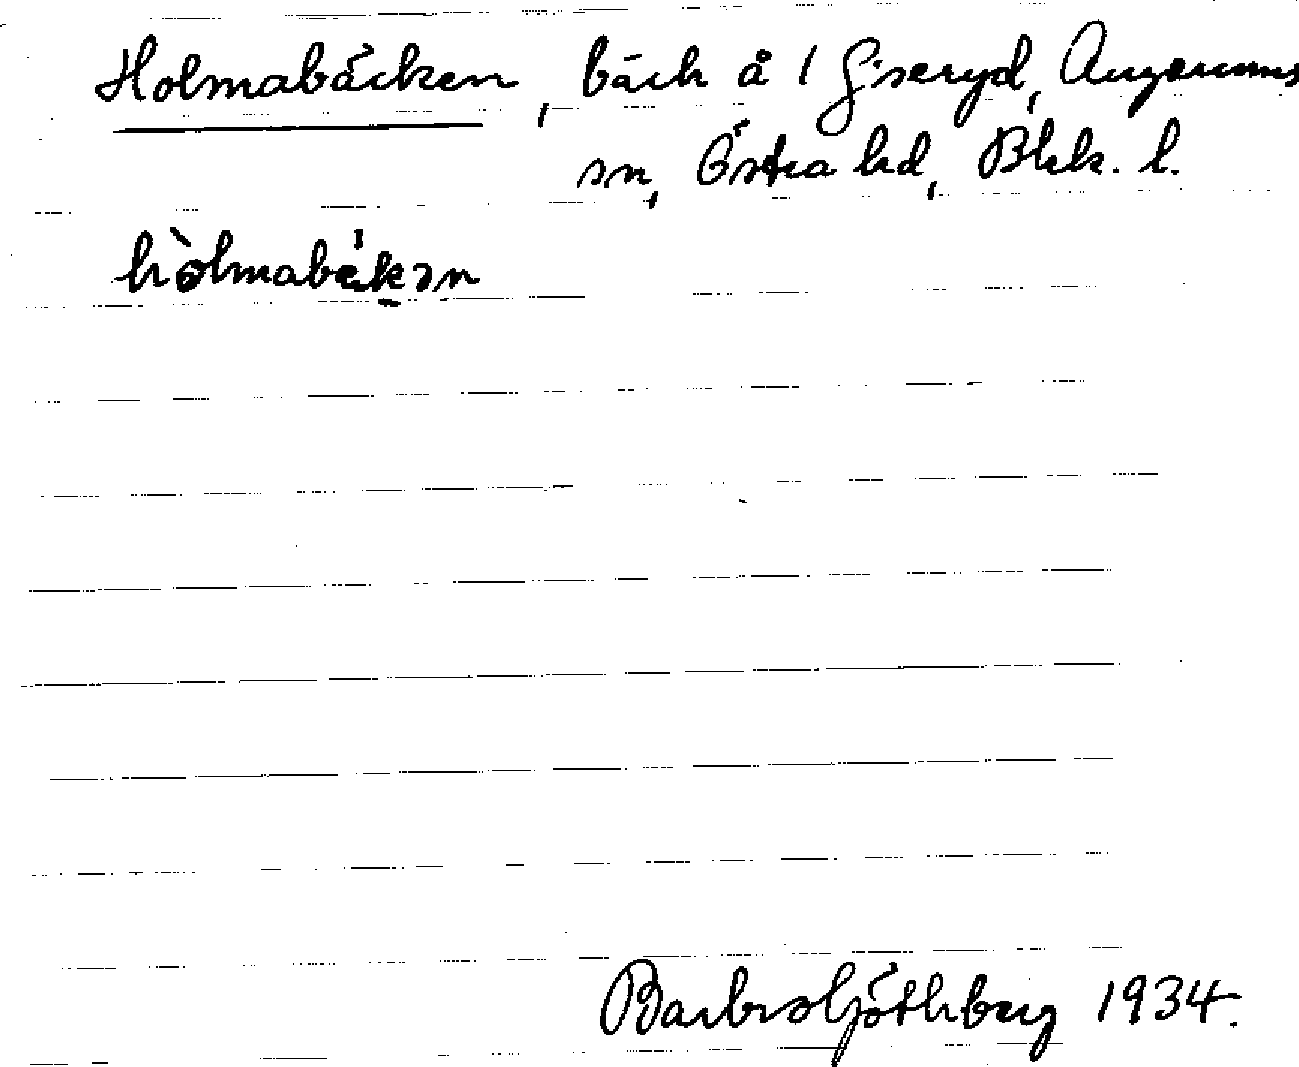 Holmabäcken, bäck å 1 Giseryd, Augerums
sn, Östra hd, Blek. l.
hòlmabékən
Barbro Göthberg 1934.